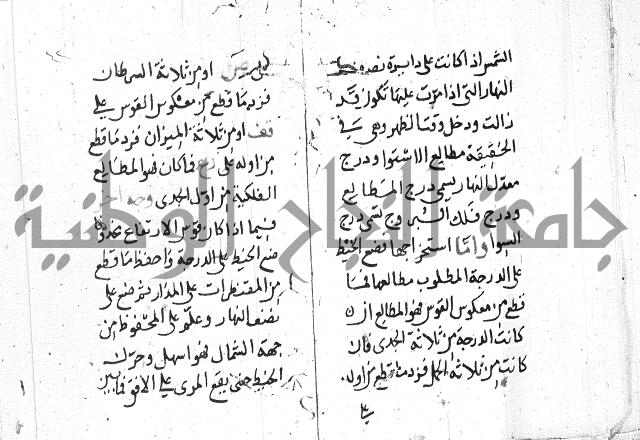 الشمس اذا كانت على دايرة نصف
النهار التى اذا مرت عليها تكون قد
زالت ودخل وقت الظهر وهى فى
الحقيقة مطالع الاستوا ودرج
معدل النهار يسمى درج المطالع
ودرج فلك البروج تسمى درج
السوا واما استخراجها فضع الخيط
على الدرجة المطلوب مطالعها فما
قطع من معكوس القوس فهو المطالع ان
كانت الدرجة من ثلاثة الجدى فان
كانت من ثلاثة الحمل فزد ما قطع من اوله
على
او من ثلاثة السرطان
فزد ما قطع من معكوس القوس على
قف او من ثلاثة الميزان فزد ما قطع
من اوله على رع فما كان فهو المطالع
الفلكية من اول الجدى
فيما اذا كان قوس الارتفاع
ضع الخيط على الدرجة واحفظ ما قطع
من المقنطرات على المدار ثم ضع على
نصف النهار وعلم على المحفوظ من
جهة الشمال فهو اسهل وحرك
الخيط حتى يقع المرى على الافق فما بين
جامعة النجاح الوطنية